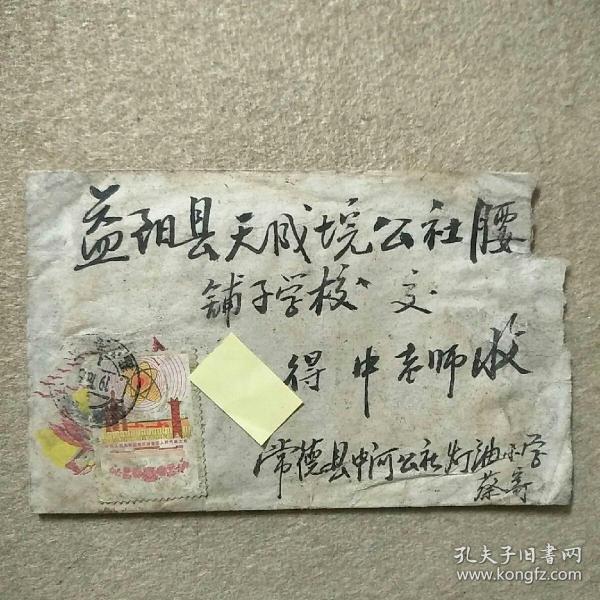 益阳县天成垸公社腰
铺子学校 交
得中老师收
常德县中河公社灯油小学
蔡寄
孔夫子旧书网
www.kongfz.com